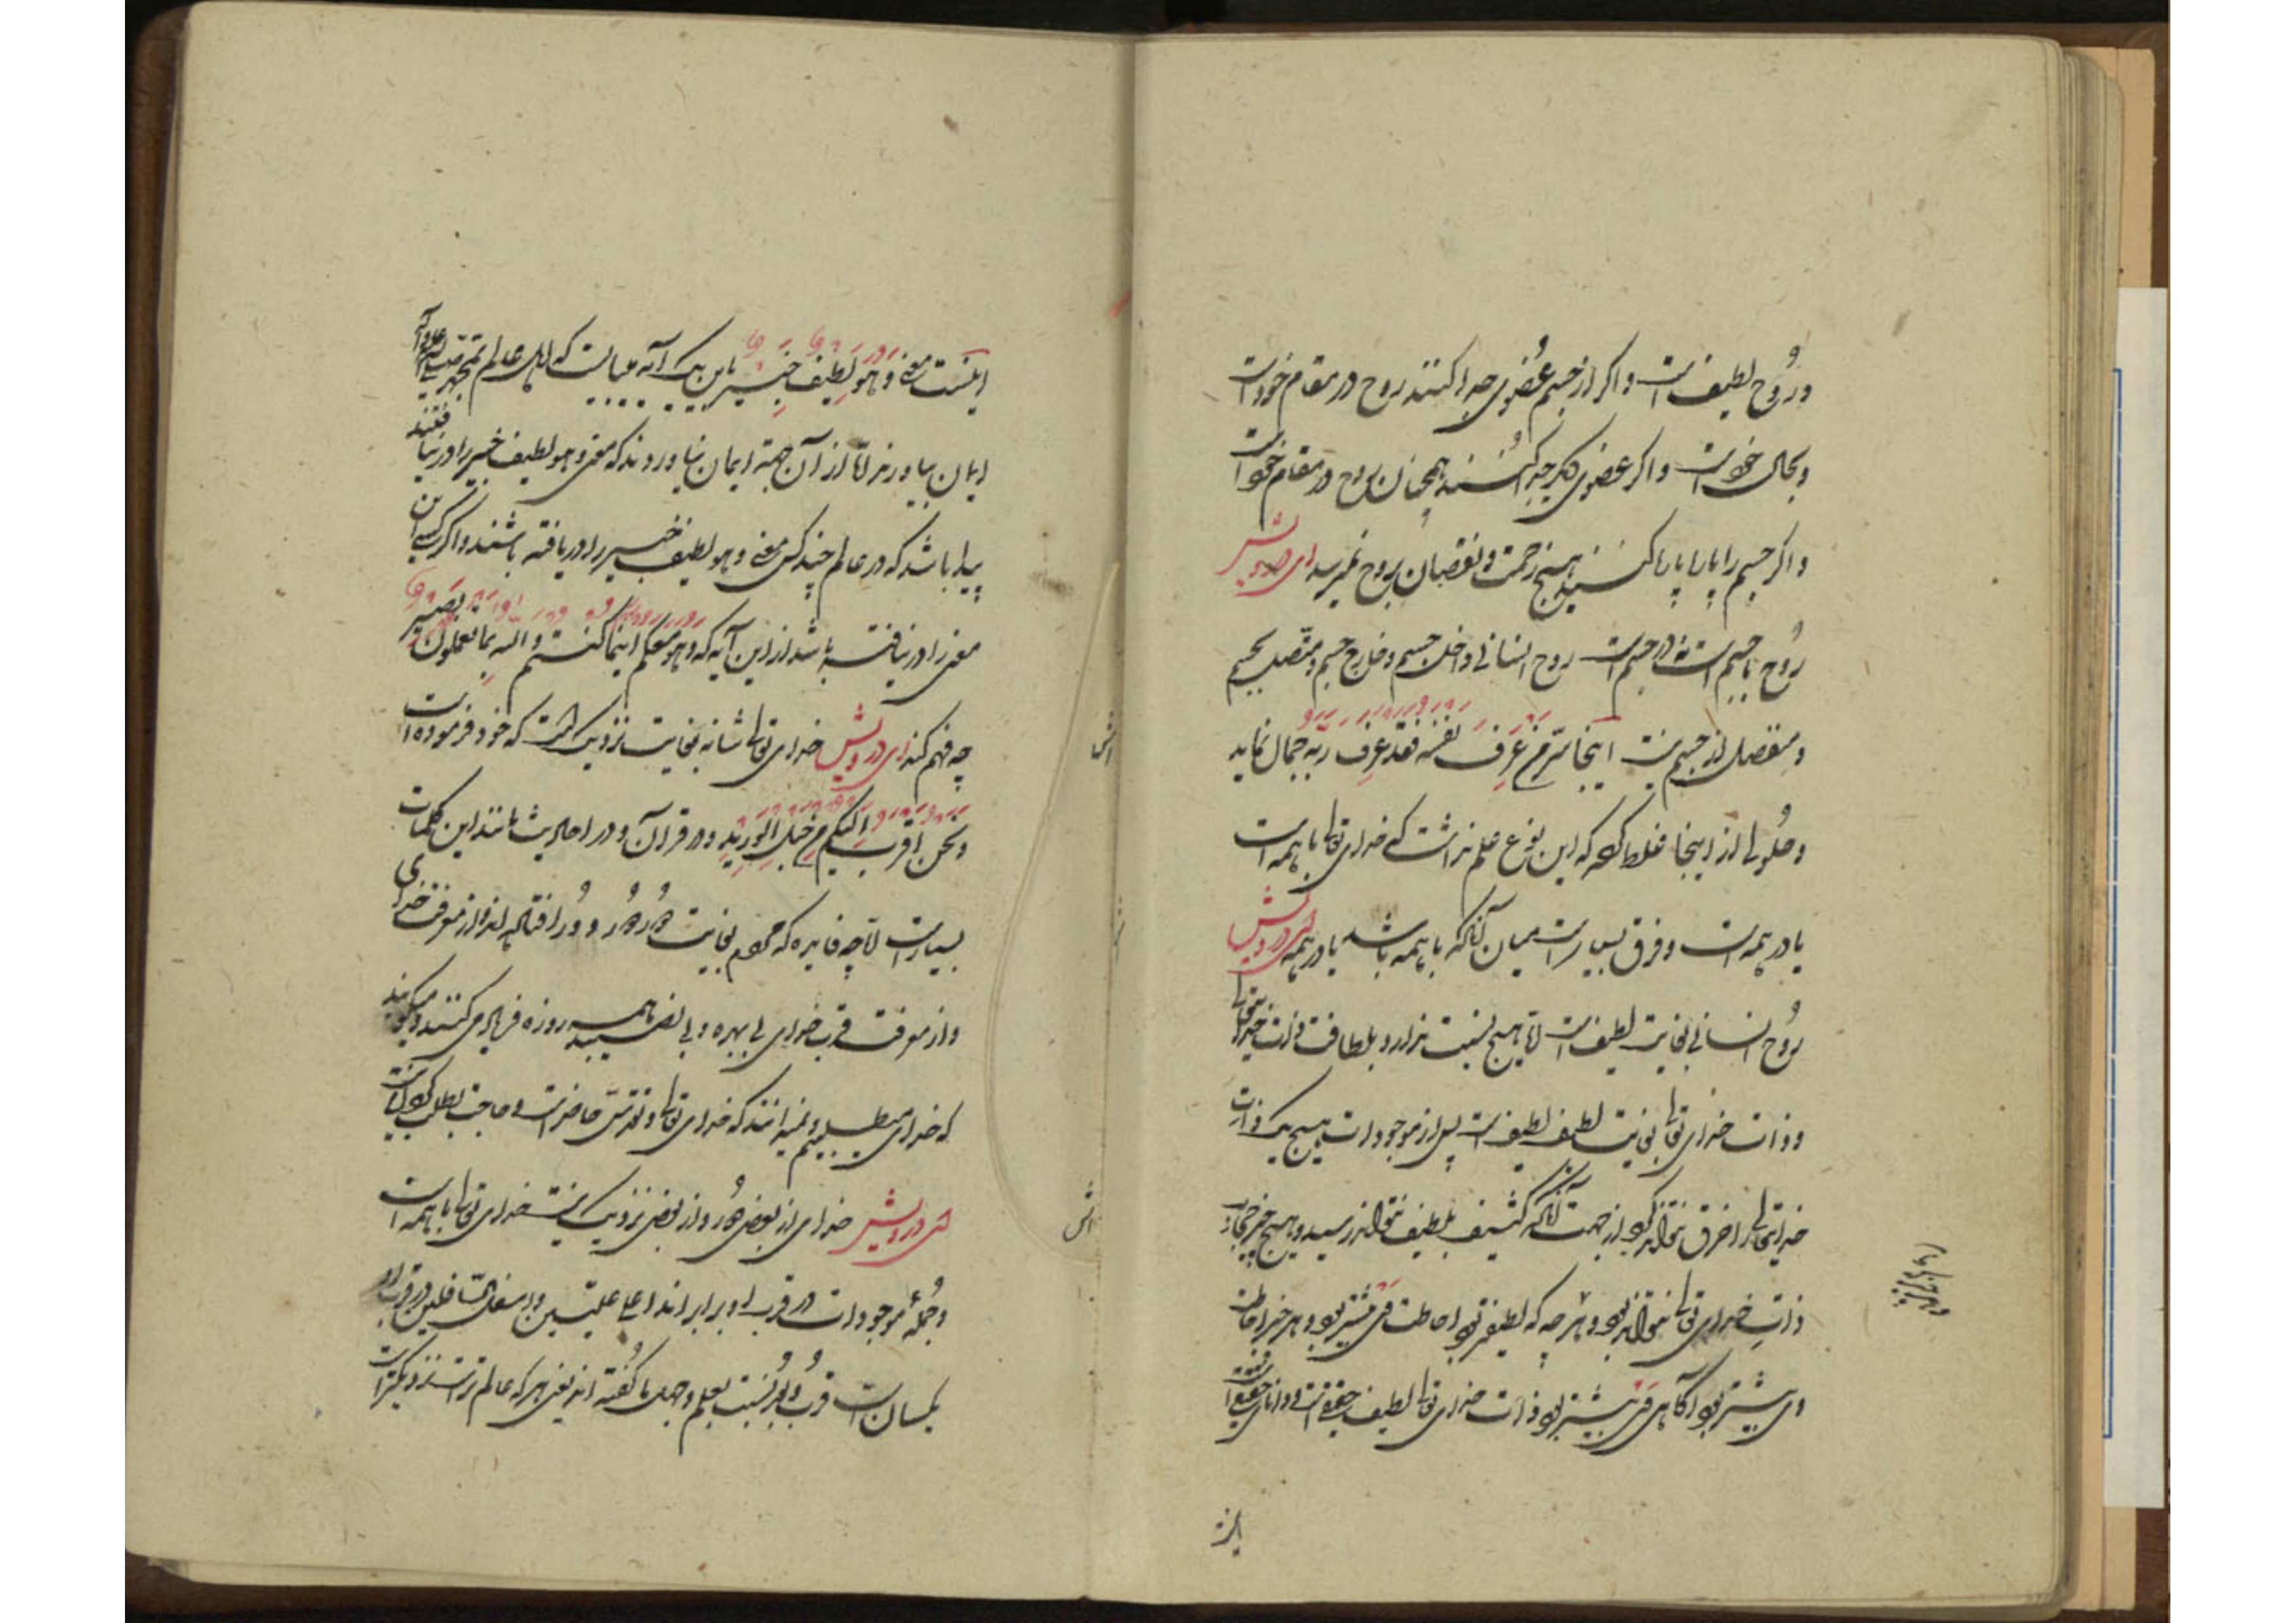 و روح لطیف است و اکر از جسم عضوی جدا کنند روح در مقام خود است
و بحال خود است و اکر عضوی دیکر جدا کنند همچنان روح در مقام خود است
و اکر جسم را پاره پاره کنند هیچ زحمت و نقصان بروح نمیرسد ای درویش
روح با جسم است نه در جسم است روح انسانی داخل جسم و خارج جسم و متصل بجسم
و منفصل از جسم نیست اینجا سر من عرف نفسه فقد عرف ربه جمال نماید
و حلولی از اینجا غلط کرد که این نوع علم نداشت که خدای تعالی با همه است
یا در همه است و فرق بسیار است میان آنکه با همه باشد یا در همه ای درویش
روح انسانی بغایت لطیف است اما هیچ نسبت ندارد بلطافت ذات خدایتعالی
و ذات خدای تعالی بغایت لطیف لطیف است پس از موجودات هیچ یک ذات
خدایتعالی را خرق نتواند کرد از جهت آنکه کثیف بلطیف نتواند رسید و هیچ چیز حجاب
ذات خدای تعالی نتواند بود و هر چه که لطیف‌تر بود احاطت وی بیشتر بود و هر چیز احاطت
وی بیشتر بود آکاهی وی بیشتر بود ذات خدای تعالی لطیف حقیقی است و دانای حقیقی است
اینست معنی و هو لطیف خبیر باین یک آیه میبایست که اهل عالم بمحمد صلی الله علیه و آله
ایمان بیاورند اما از آن جهة ایمان نیاوردند که معنی و هو لطیف خبیر را در نیافتند
پیدا باشد که در عالم چند کس معنی و هو لطیف خبیر را دریافته باشند و اکر کسی این
معنی را در نیافته باشد از این آیه که و هو معکم اینما کنتم و الله بما تعملون بصیر
چه فهم کند ای درویش خدای تعالی شانه بغایت نزدیک است که خود فرموده است
و نحن اقرب الیکم من حبل الورید و در قرآن و در احادیث مانند این کلمات
بسیار است اما چه فایده که مردم بغایت دور دور و دور افتاده اند و از معرفت خدای
و از معرفت قرب خدای بی بهره و بی نصیبند همه روزه فریاد میکنند و میکویند
که خدای میطلبیم و نمیدانند که خدای تعالی و تقدس حاضر است و حاجت بطلب کردن نیست
ای درویش خدای از بعضی دور و از بعضی نزدیک نیست خدای تعالی با همه است
و جمله موجودات در قرب او برابر اند اعلا علیین و اسفل السافلین در قرب او
یکسان است قرب و بعد نسبت بعلم و جهل ما کفته اند یعنی هر که عالم تر است نزدیکتر است